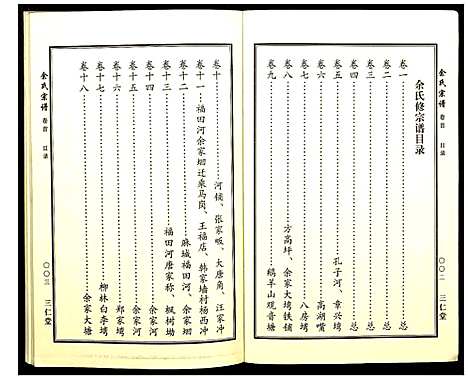 余氏宗谱
卷首
目录
〇〇二
三仁堂
余氏修宗谱目录
卷一……总
卷二……总
卷三……总
卷四……总
卷五……孔子河、章兴塆
卷六……高湖嘴
卷七……八房塆
卷八……方高坪、余家大塆铁铺
卷九……鹅羊山观音塘
卷十……河铺、张家畈、大唐角、汪家冲
卷十一……福田河余家㘭迁乘马岗、王福店、韩家墙村杨西冲
卷十二……麻城福田河、余家㘭
卷十三……福田河唐家称、枫树坳
卷十四……余家河
卷十五……余家河
卷十六……郑家塆
卷十七……柳林白李塆
卷十八……余家大塘
余氏宗谱
卷首
目录
〇〇三
三仁堂